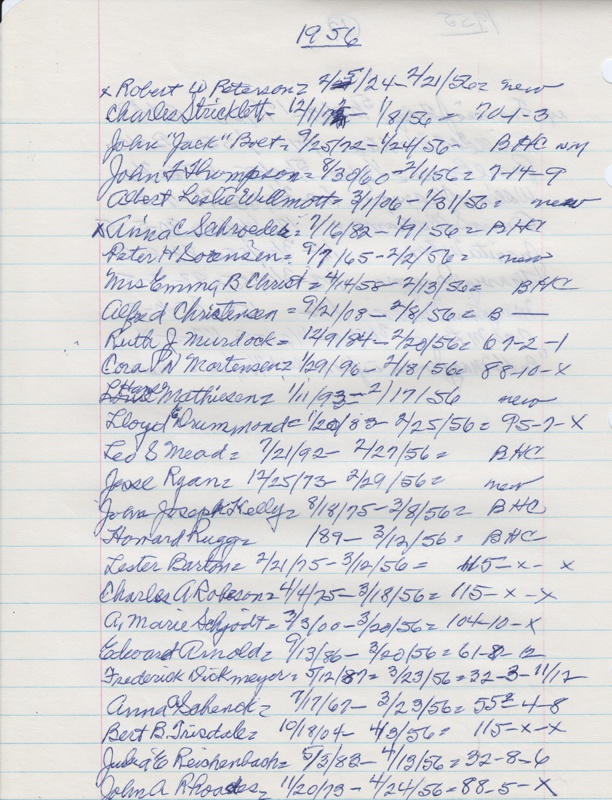 1956
x Robert W Peterson = 2/5/24 - 2/21/56 = new
Charles Stricklett - 12/1/7 - 1/8/56 = 704-3
John "Jack" Boet - 9/25/72 - 1/24/56 - BHC
John F Thompson = 8/30/60 - 2/1/56 = 7-14-9
Albert Leslie Willmott = 3/1/06 - 1/31/56 = new
x Anna C Schroeder = 7/16/82 - 1/9/56 = BHC
Peter H Sorensen = 9/7/65 - 2/2/56 = new
Mrs Emma B Christ = 4/14/58 - 2/13/56 = BHC
Alfred Christensen = 9/21/03 - 2/8/56 = B —
Ruth J Murdock = 12/9/84 - 2/20/56 = 67-2-1
Cora N Mortensen = 1/29/96 - 2/18/56 = 88-10-X
Mathiesen = 1/11/93 - 2/17/56 new
Lloyd E Drummond = 1/20/83 - 2/25/56 = 95-7-X
Leo S Mead = 7/21/92 - 2/27/56 = BHC
Jesse Ryan = 12/25/73 - 2/29/56 = new
John Joseph Kelly = 8/18/75 - 3/8/56 = BHC
Howard Rugg = 189 - 3/12/56 = BHC
Lester Barton = 2/21/75 - 3/12/56 = 115-x-x
Charles A Robeson = 4/4/75 - 3/18/56 = 115-x-x
A. Marie Schjodt = 3/3/00 - 3/20/56 = 104-10-X
Edward Arnold = 9/13/86 - 3/20/56 = 61-8-12
Frederick Dickmeyer = 5/12/87 = 3/23/56 = 32-3-11/12
Anna Schenck = 7/17/67 - 3/23/56 = 55-4-8
Bert B. Trisdale = 10/18/04 - 4/3/56 = 115-x-x
Julia E Reichenbach = 5/3/82 - 4/13/56 = 32-8-6
John A Rhoades = 11/20/73 - 4/24/56 = 88-5-X